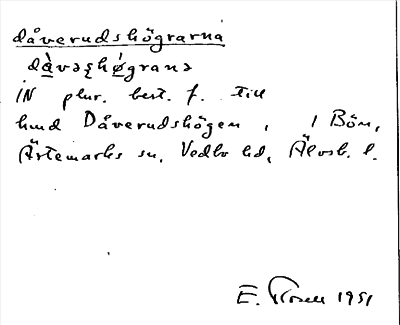 dåverudshögrarna
dàvəʂhø̀granə
IN plur. best. f. till
hmd Dåverudshögen, i Bön,
Ärtemarks sn, Vedbo hd, Älvsb. l.
E. 1951